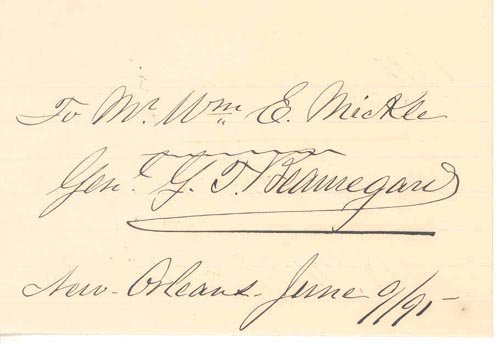 To Mr. Wm. E. Mickle
Genl. G. T. Beauregard
New-Orleans. June 9/91-